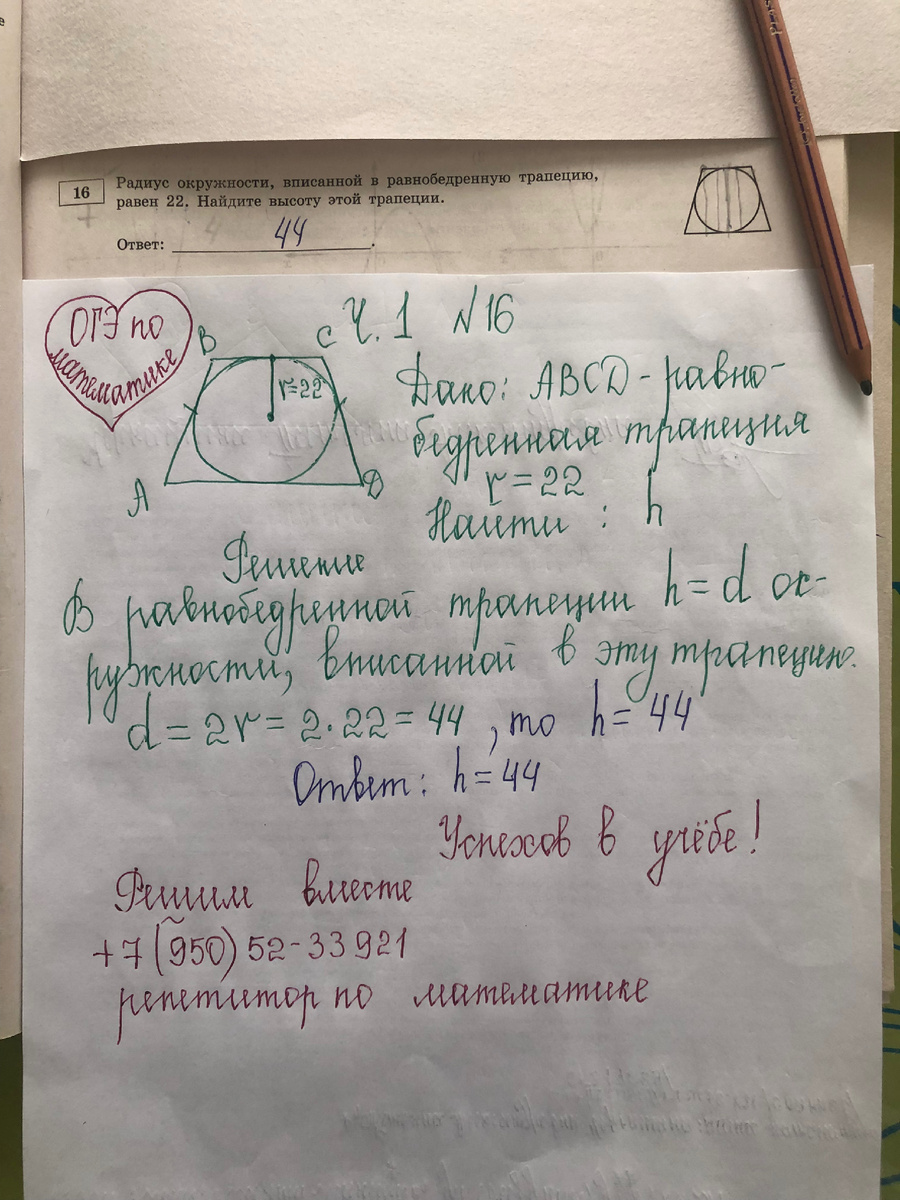 16
Радиус окружности, вписанной в равнобедренную трапецию,
равен 22. Найдите высоту этой трапеции.
Ответ: 44.
ОГЭ по
математике
Ч. 1 №16
B C
r=22
A D
Дано: ABCD - равно-
бедренная трапеция
r = 22
Найти : h
Решение
В равнобедренной трапеции h = d ок-
ружности, вписанной в эту трапецию.
d = 2r = 2·22 = 44 , то h = 44
Ответ: h = 44
Успехов в учёбе!
Решим вместе
+7 (950) 52-33921
репетитор по математике